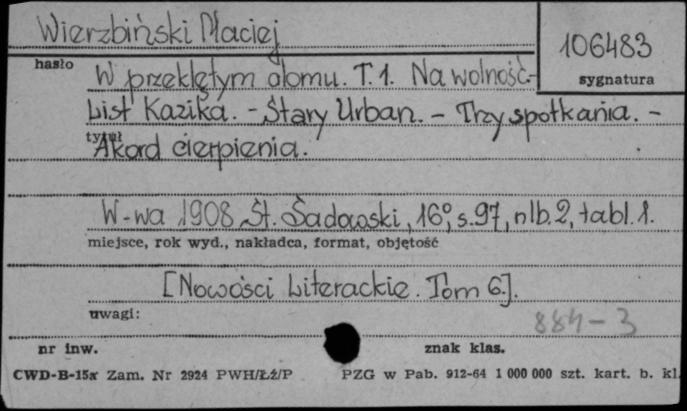 Wierzbiński Maciej
106483
hasło
sygnatura
W przeklętym domu. T. 1. Na wolność.-
List Kazika. - Stary Urban. - Trzy spotkania. -
tytuł
Akord cierpienia.
W-wa 1908, St. Sadowski, 16°, s. 97, nlb. 2, tabl. 1.
miejsce, rok wyd., nakładca, format, objętość
[Nowości Literackie. Tom 6.].
uwagi:
884-3
nr inw.
znak klas.
CWD-B-15a Zam. Nr 2924 PWH/Łż/P PZG w Pab. 912-64 1 000 000 szt. kart. b. kl.